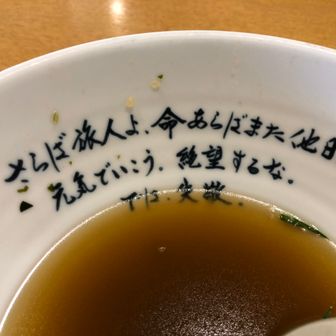 さらば旅人よ、命あらばまた他日
元気でいこう、絶望するな。
では、失敬。